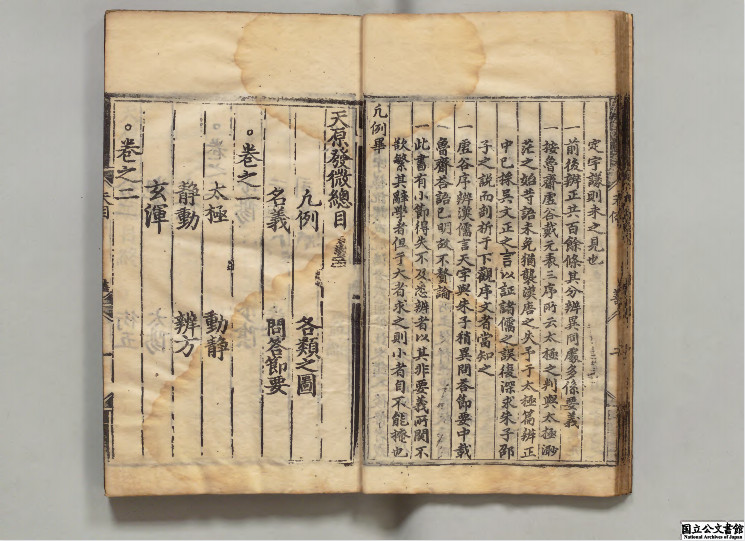 定宇謙則未之見也
一前後辨正共百餘條其分辨異同處多係要義
一按魯齋虛谷戴元表三序所云太極之判與太極渺
茫之始等語未免猶襲漢唐之失予于太極篇辨正
中已採吳文正之言以証諸儒之誤復深求朱子邵
子之說而剖析于下觀序文者當知之
一虛谷序辨漢儒言天字與朱子稍異問答節要中載
魯齋荅語已明故不贅論
一此書有小節得失不及悉辨者以其非要義所関不
欲繁其辭學者但于大者求之則小者自不能掩也
凡例畢
天原發微總目
凡例 各類之圖
名義 問答節要
卷之一
太極 動靜
靜動 辨方
玄渾
卷之二
国立公文書館
National Archives of Japan